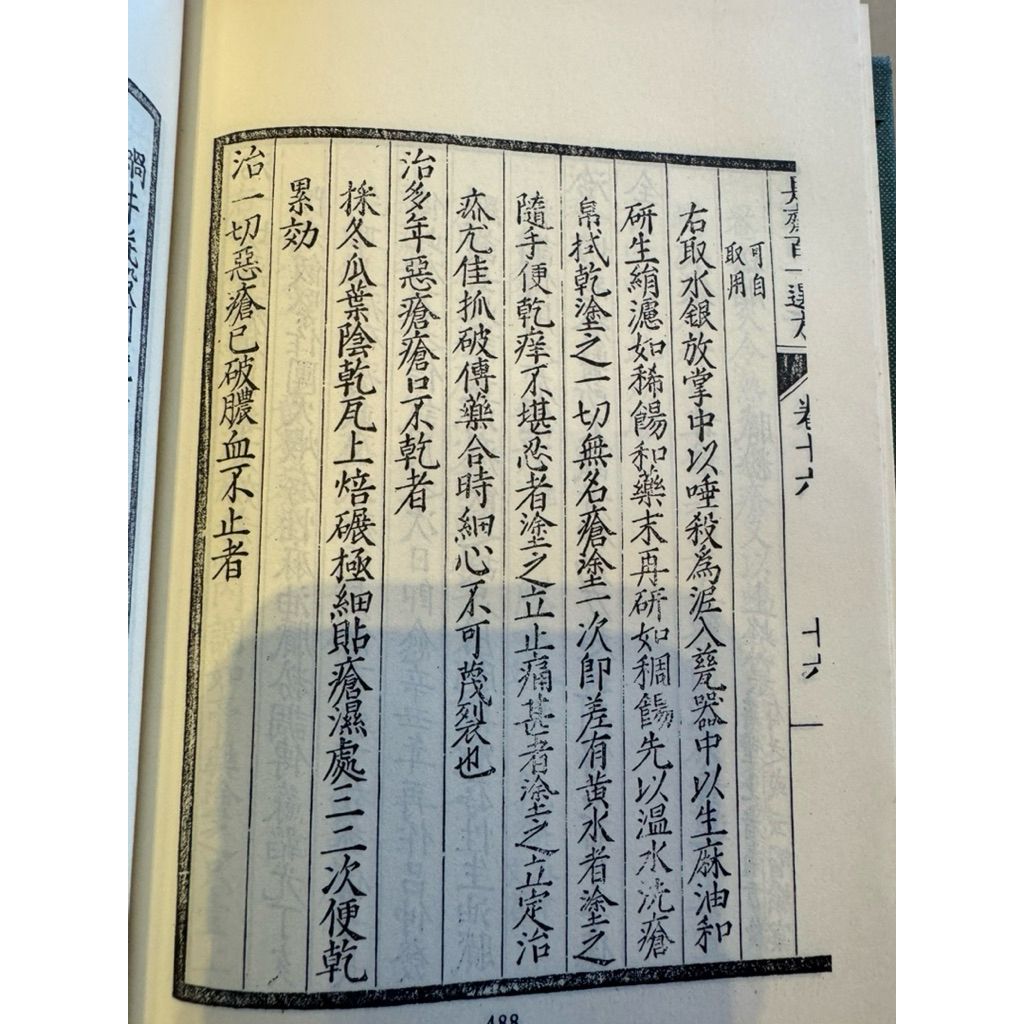 是齋百一選方
卷十六
十六
可自
取用
右取水銀放掌中以唾殺為泥入甆器中以生麻油和
研生絹濾如稀餳和藥末再研如稠餳先以溫水洗瘡
帛拭乾塗之一切無名瘡塗一次即差有黃水者塗之
隨手便乾痒不堪忍者塗之立止痛甚者塗之立定治
疥尤佳抓破傅藥合時細心不可蔑裂也
治多年惡瘡瘡口不乾者
採冬瓜葉陰乾瓦上焙碾極細貼瘡濕處三二次便乾
累効
治一切惡瘡已破膿血不止者
488